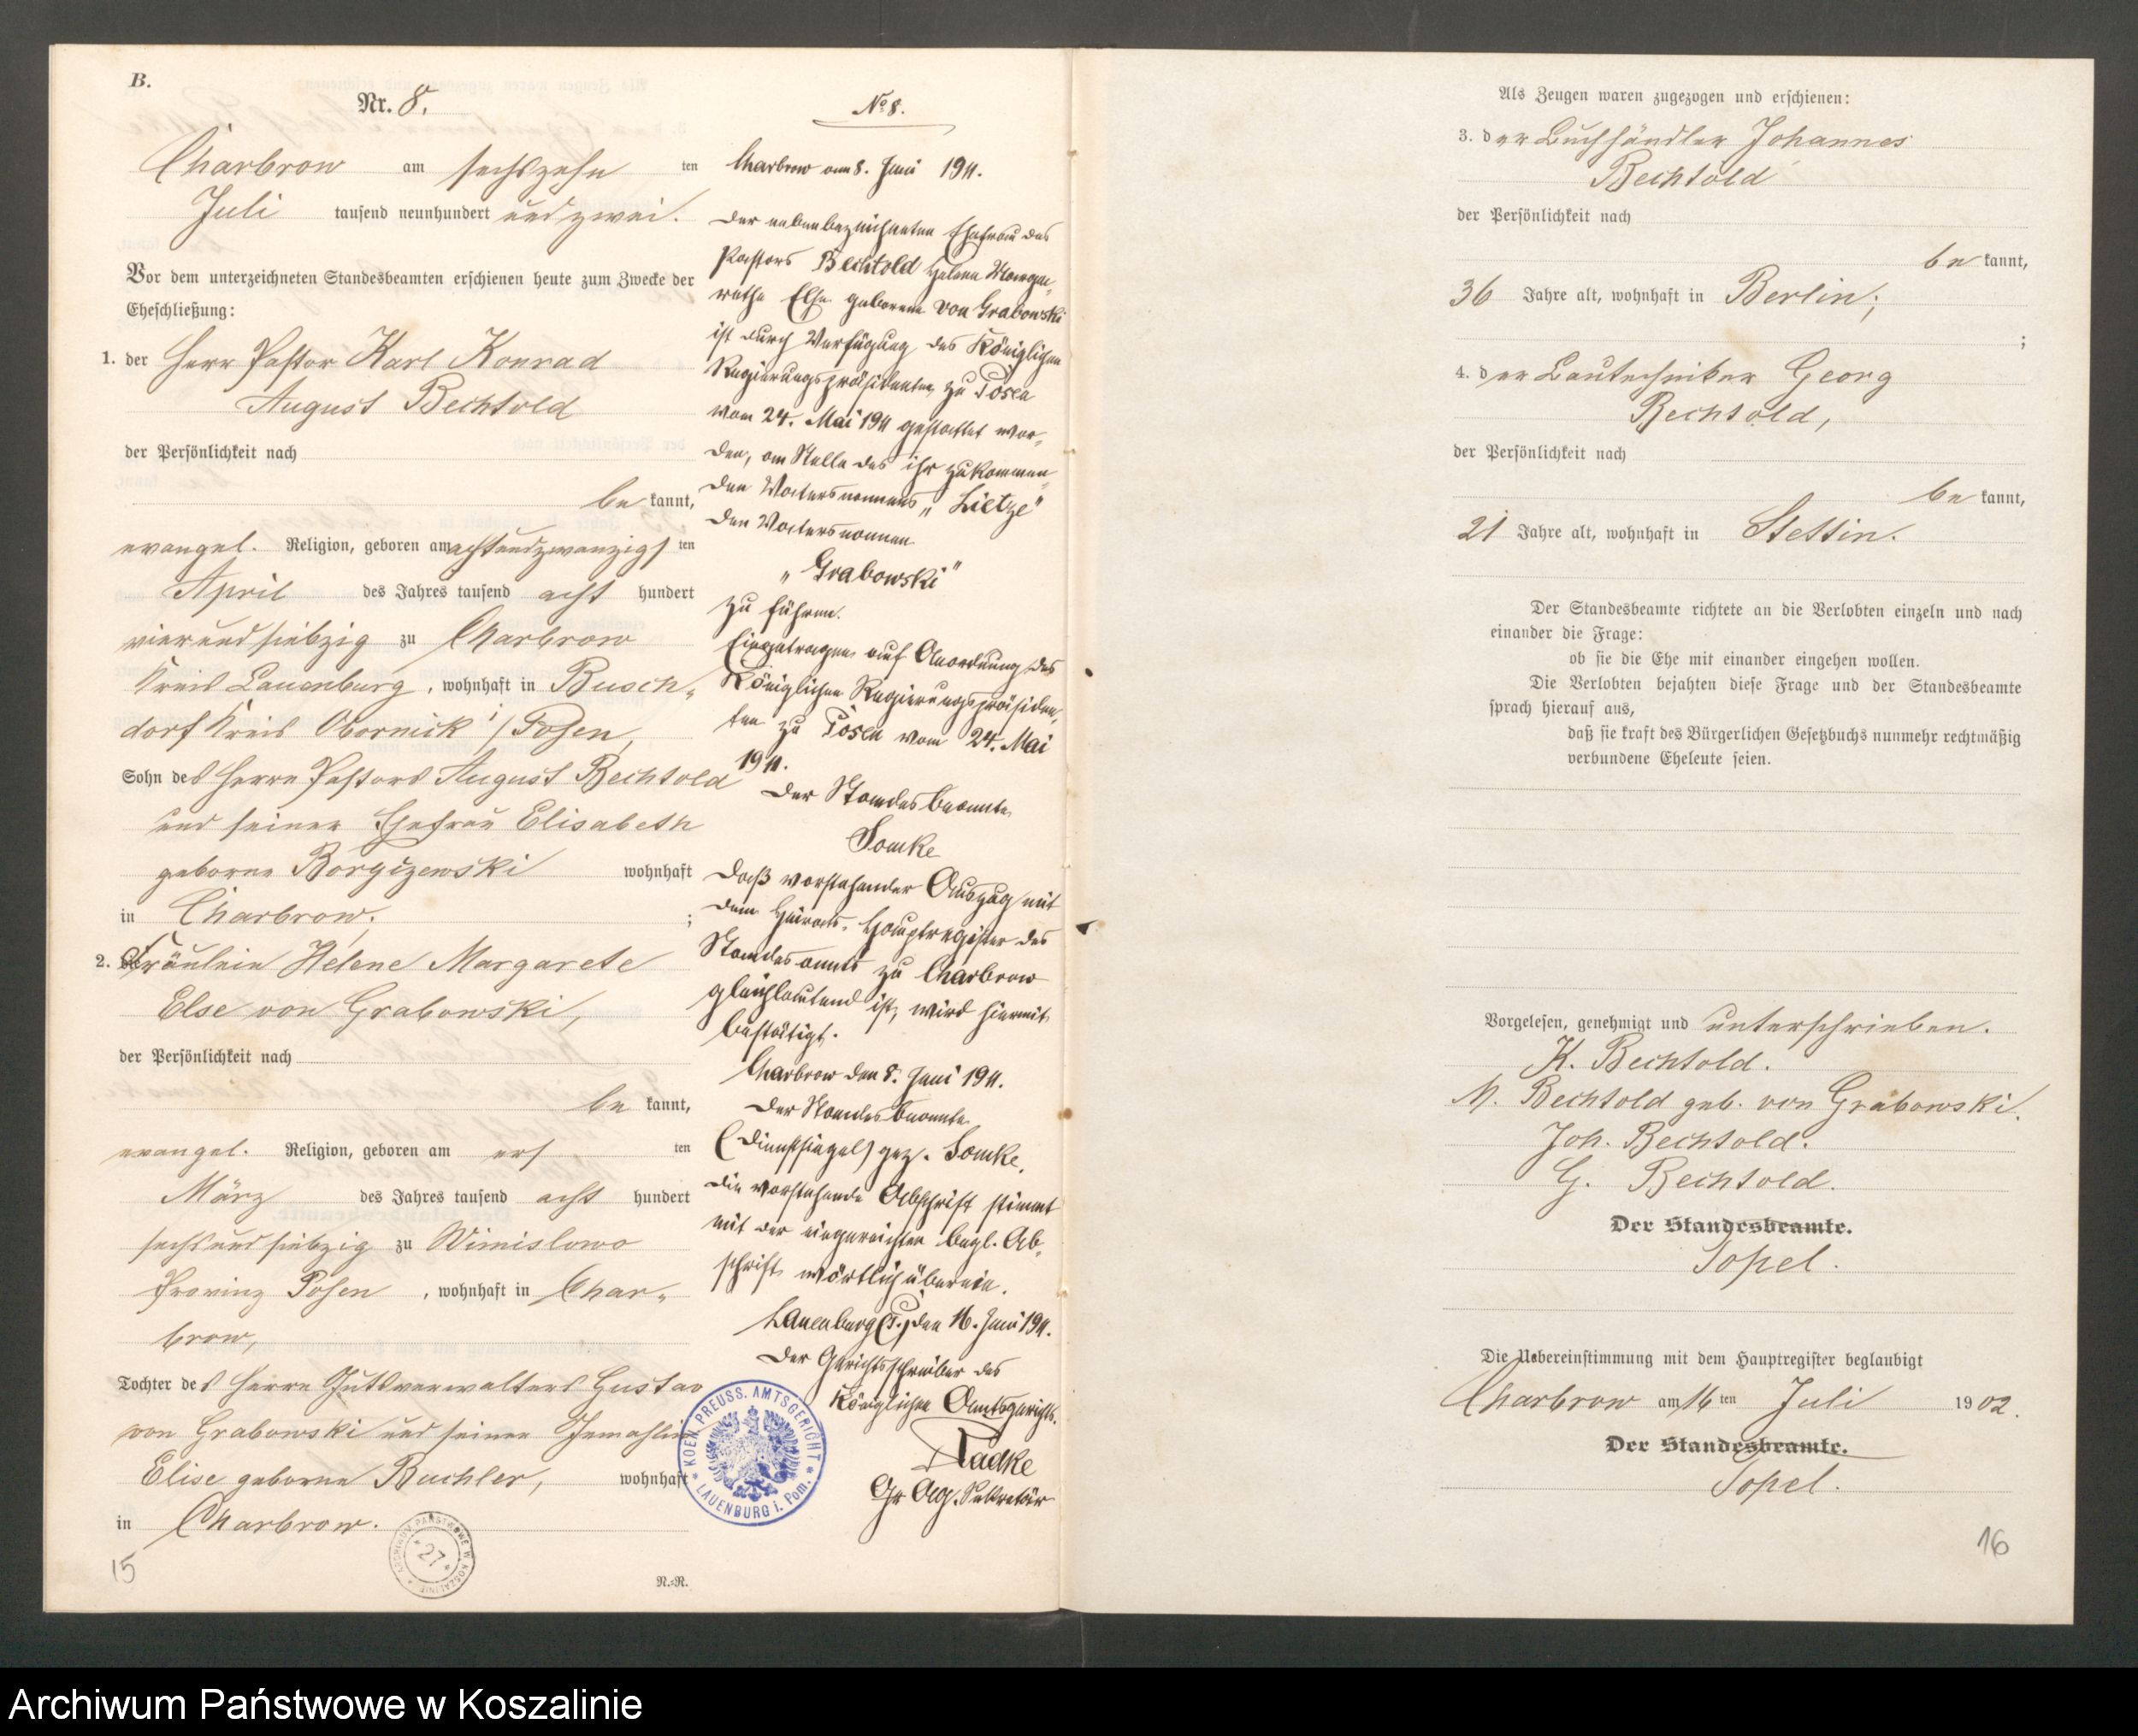 B.
Nr. 8.
Charbrow am sechszehn ten
Juli tausend neunhundert und zwei.
Vor dem unterzeichneten Standesbeamten erschienen heute zum Zwecke der
Eheschließung:
1. der Herr Pastor Karl Konrad
August Bechtold
der Persönlichkeit nach
be kannt,
evangel. Religion, geboren am achtundzwanzigs ten
April des Jahres tausend acht hundert
vierundsiebzig zu Charbrow
Kreis Lauenburg, wohnhaft in Busch-
dorf Kreis Obornick i/Posen,
Sohn des Herrn Pastors August Bechtold
und seiner Ehefrau Elisabeth
geborne Borgizewski wohnhaft
in Charbrow;
2. Fräulein Helene Margarete
Else von Grabowski,
der Persönlichkeit nach
be kannt,
evangel. Religion, geboren am ers ten
März des Jahres tausend acht hundert
sechsundsiebzig zu Wimislowo
Provinz Posen, wohnhaft in Char-
brow,
Tochter des Herrn Gutsverwalters Gustav
von Grabowski und seiner Gemahlin
Elise geborne Buchler, wohnhaft
in Charbrow.
ARCHIWUM PAŃSTWOWE W KOSZALINIE
27
15
R.=R.
No 8.
Charbrow am 8. Juni 1911.
Der nebenbezeichneten Ehefrau des
Pastors Bechtold Helene Marga-
rethe Else geborene von Grabowski
ist durch Verfügung des Königlichen
Regierungspräsidenten zu Posen
vom 24. Mai 1911 gestattet wor-
den, an Stelle des ihr zukommen-
den Vatersnamens „Lietze"
den Vatersnamen
„Grabowski"
zu führen.
Eingetragen auf Anordnung des
Königlichen Regierungspräsiden-
ten zu Posen vom 24. Mai
1911.
Der Standesbeamte
Somke
Daß vorstehender Auszug mit
dem Heirats-Hauptregister des
Standesamts zu Charbrow
gleichlautend ist, wird hiermit
bestätigt.
Charbrow den 8. Juni 1911.
Der Standesbeamte
(Dienstsiegel) gez. Somke.
Die vorstehende Abschrift stimmt
mit der eingereichten begl. Ab-
schrift wörtlich überein.
Lauenburg (P.) den 16. Juni 1911.
Der Gerichtsschreiber des
Königlichen Amtsgerichts.
Radke
KOEN. PREUSS. AMTSGERICHT
LAUENBURG i. Pom.
Als Zeugen waren zugezogen und erschienen:
3. der Buchhändler Johannes
Bechtold
der Persönlichkeit nach
be kannt,
36 Jahre alt, wohnhaft in Berlin;
;
4. der Bautechniker Georg
Bechtold,
der Persönlichkeit nach
be kannt,
21 Jahre alt, wohnhaft in Stettin.
Der Standesbeamte richtete an die Verlobten einzeln und nach
einander die Frage:
ob sie die Ehe mit einander eingehen wollen.
Die Verlobten bejahten diese Frage und der Standesbeamte
sprach hierauf aus,
daß sie kraft des Bürgerlichen Gesetzbuchs nunmehr rechtmäßig
verbundene Eheleute seien.
Vorgelesen, genehmigt und unterschrieben.
K. Bechtold.
M. Bechtold geb. von Grabowski.
Joh. Bechtold.
G. Bechtold.
Der Standesbeamte.
Sopel.
Die Uebereinstimmung mit dem Hauptregister beglaubigt
Charbrow am 16 ten Juli 1902.
Der Standesbeamte.
Sopel.
16
Archiwum Państwowe w Koszalinie